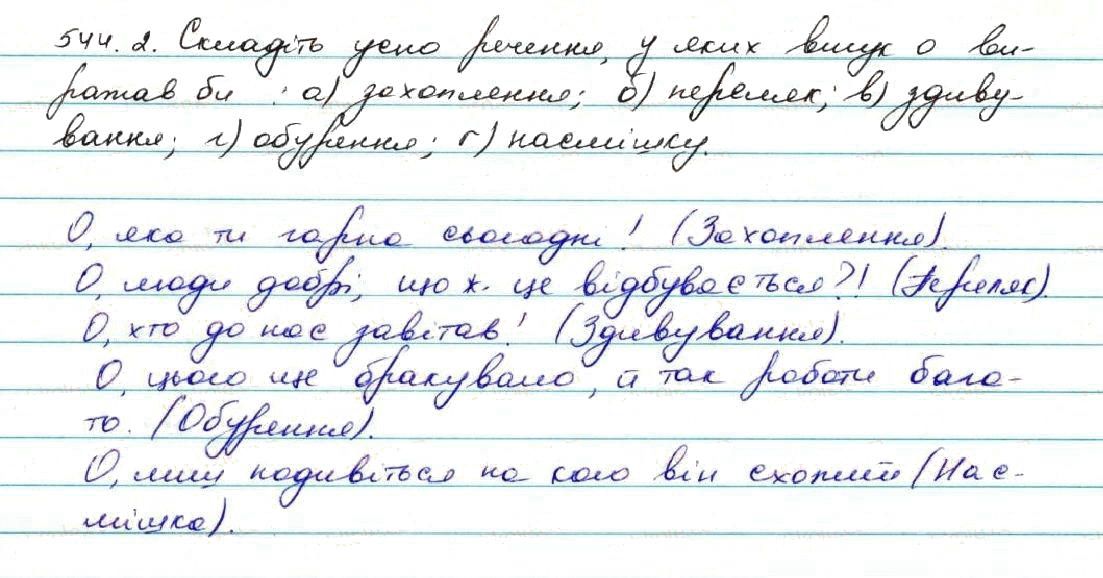 544. 2. Складіть усно речення, у яких вигук о ви-
ражав би : а) захоплення; б) переляк; в) здиву-
вання; г) обурення; ґ) насмішку.
О, яка ти гарна сьогодні! (Захоплення).
О, люди добрі, що ж це відбувається?! (Переляк).
О, хто до нас завітав! (Здивування).
О, цього ще бракувало, й так роботи бага-
то. (Обурення).
О, лиш подивіться на кого він схожий (Нас-
мішка).